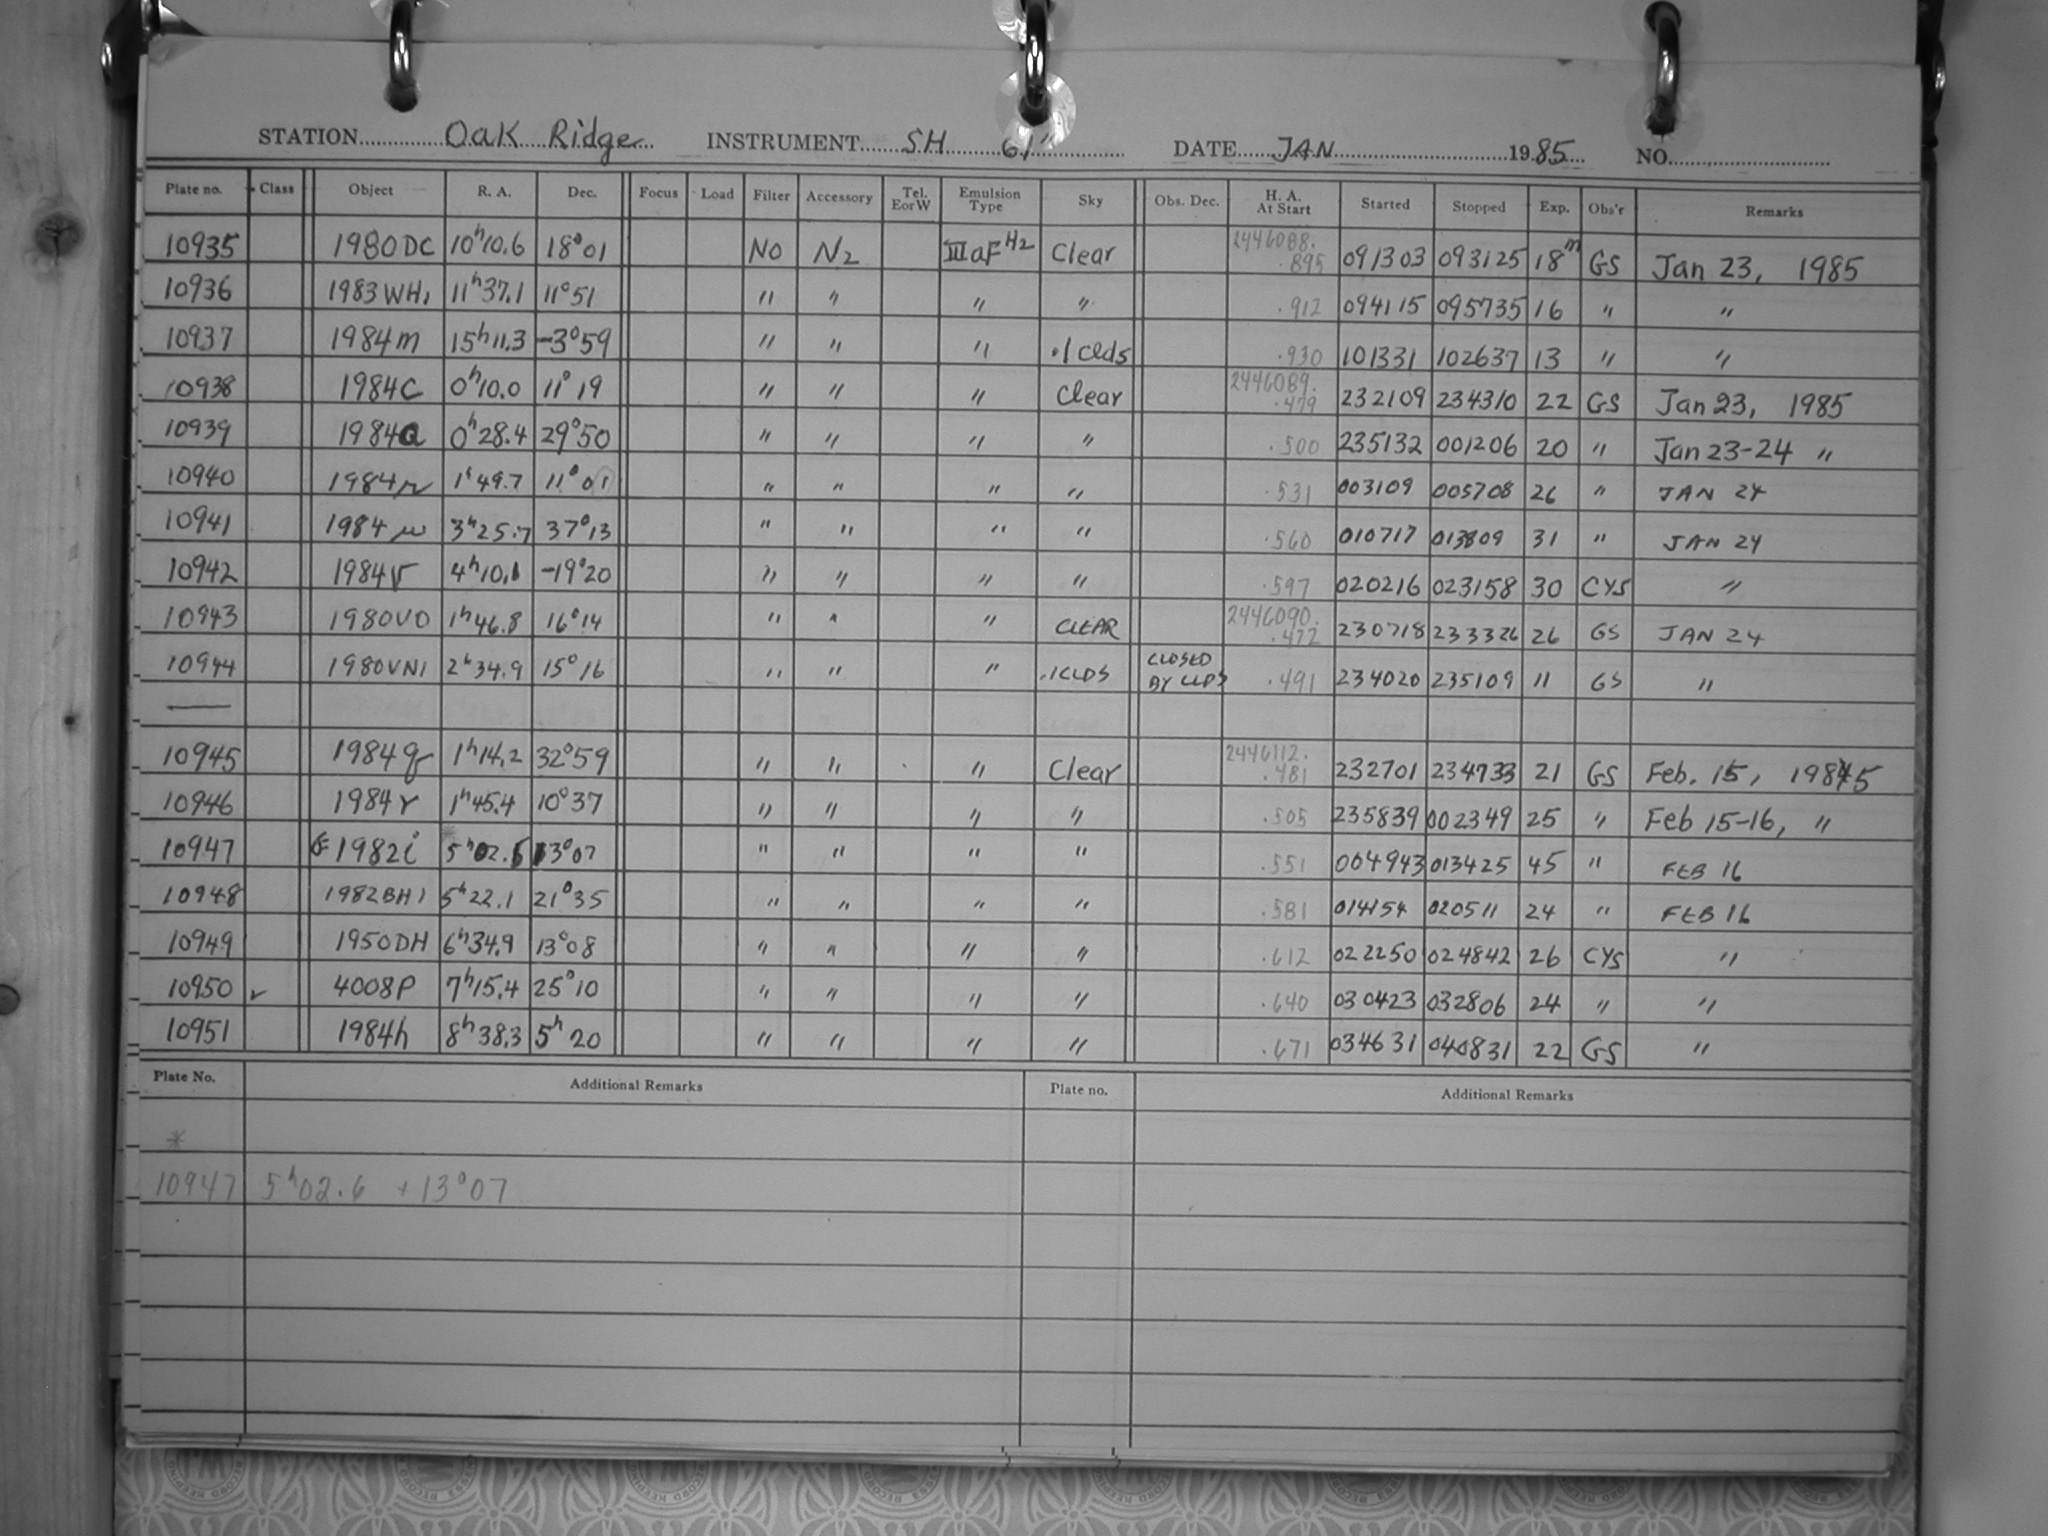 STATION Oak Ridge INSTRUMENT SH 61" DATE JAN 1985 NO.
Plate no. Class Object R. A. Dec. Focus Load Filter Accessory Tel. EorW Emulsion Type Sky Obs. Dec. H. A. At Start Started Stopped Exp. Obs'r Remarks
10935 1980DC 10h10.6 18°01 NO N2 IIIaF H2 Clear 2446088. .895 091303 093125 18m GS Jan 23, 1985
10936 1983WH1 11h37.1 11°51 " " " " .912 094115 095735 16 " "
10937 1984m 15h11.3 -3°59 " " " .1 Clds .930 101331 102637 13 " "
10938 1984C 0h10.0 11°19 " " " Clear 2446089. .479 232109 234310 22 GS Jan 23, 1985
10939 1984Q 0h28.4 29°50 " " " " .500 235132 001206 20 " Jan 23-24 "
10940 1984r 1h49.7 11°01 " " " " .531 003109 005708 26 " JAN 24
10941 1984 3h25.7 37°13 " " " " .560 010717 013809 31 " JAN 24
10942 1984V 4h10.1 -19°20 " " " " .597 020216 023158 30 CYS "
10943 1980VO 1h46.8 16°14 " " " CLEAR 2446090. .472 230718 233326 26 GS JAN 24
10944 1980VN1 2h34.9 15°16 " " " .1CLDS CLOSED BY CLDS .491 234020 235109 11 GS "
—
10945 1984q 1h14.2 32°59 " " " Clear 2446112. .481 232701 234733 21 GS Feb. 15, 1985
10946 1984r 1h45.4 10°37 " " " " .505 235839 002349 25 " Feb 15-16, "
10947 1982i *5h02.6 13°07 " " " " .551 004943 013425 45 " FEB 16
10948 1982BH1 5h22.1 21°35 " " " " .581 014154 020511 24 " FEB 16
10949 1950DH 6h34.9 13°08 " " " " .612 022250 024842 26 CYS "
10950 ✓ 4008P 7h15.4 25°10 " " " " .640 030423 032806 24 " "
10951 1984h 8h38.3 5h20 " " " " .671 034631 040831 22 GS "
Plate No. Additional Remarks Plate no. Additional Remarks
*
10947 5h02.6 +13°07